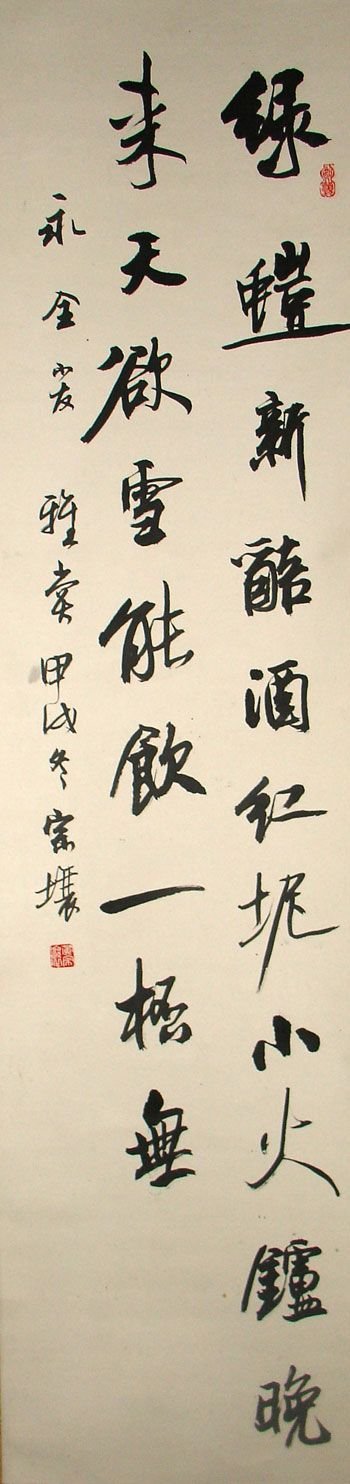 綠螘新醅酒紅坭小火鑪晚
来天欲雪能飲一桮無
永全小友 雅賞甲戌冬宗壤